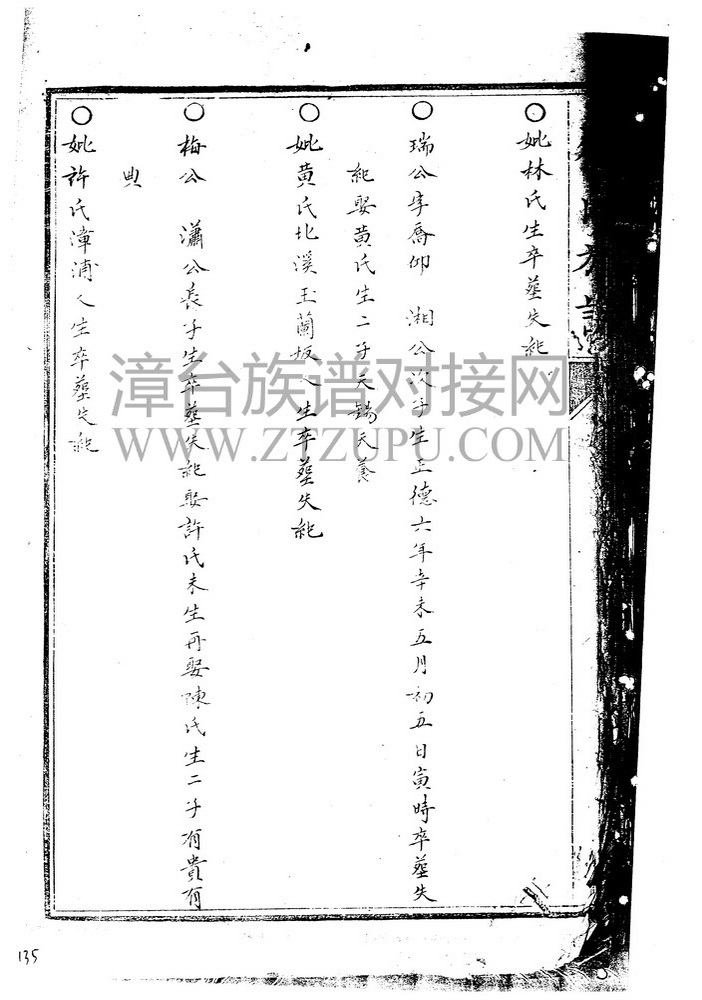 ○妣林氏生卒葬失紀
○瑞公字喬仰 湘公次子生正德六年辛未五月初五日寅時卒葬失
紀娶黄氏生二子天錫天養
○妣黄氏北溪玉蘭坂人生卒葬失紀
○梅公 瀟公長子生卒葬失紀娶許氏未生再娶陳氏生二子有貴有
典
○妣許氏漳浦人生卒葬失紀
漳台族谱对接网
WWW.ZTZUPU.COM
135